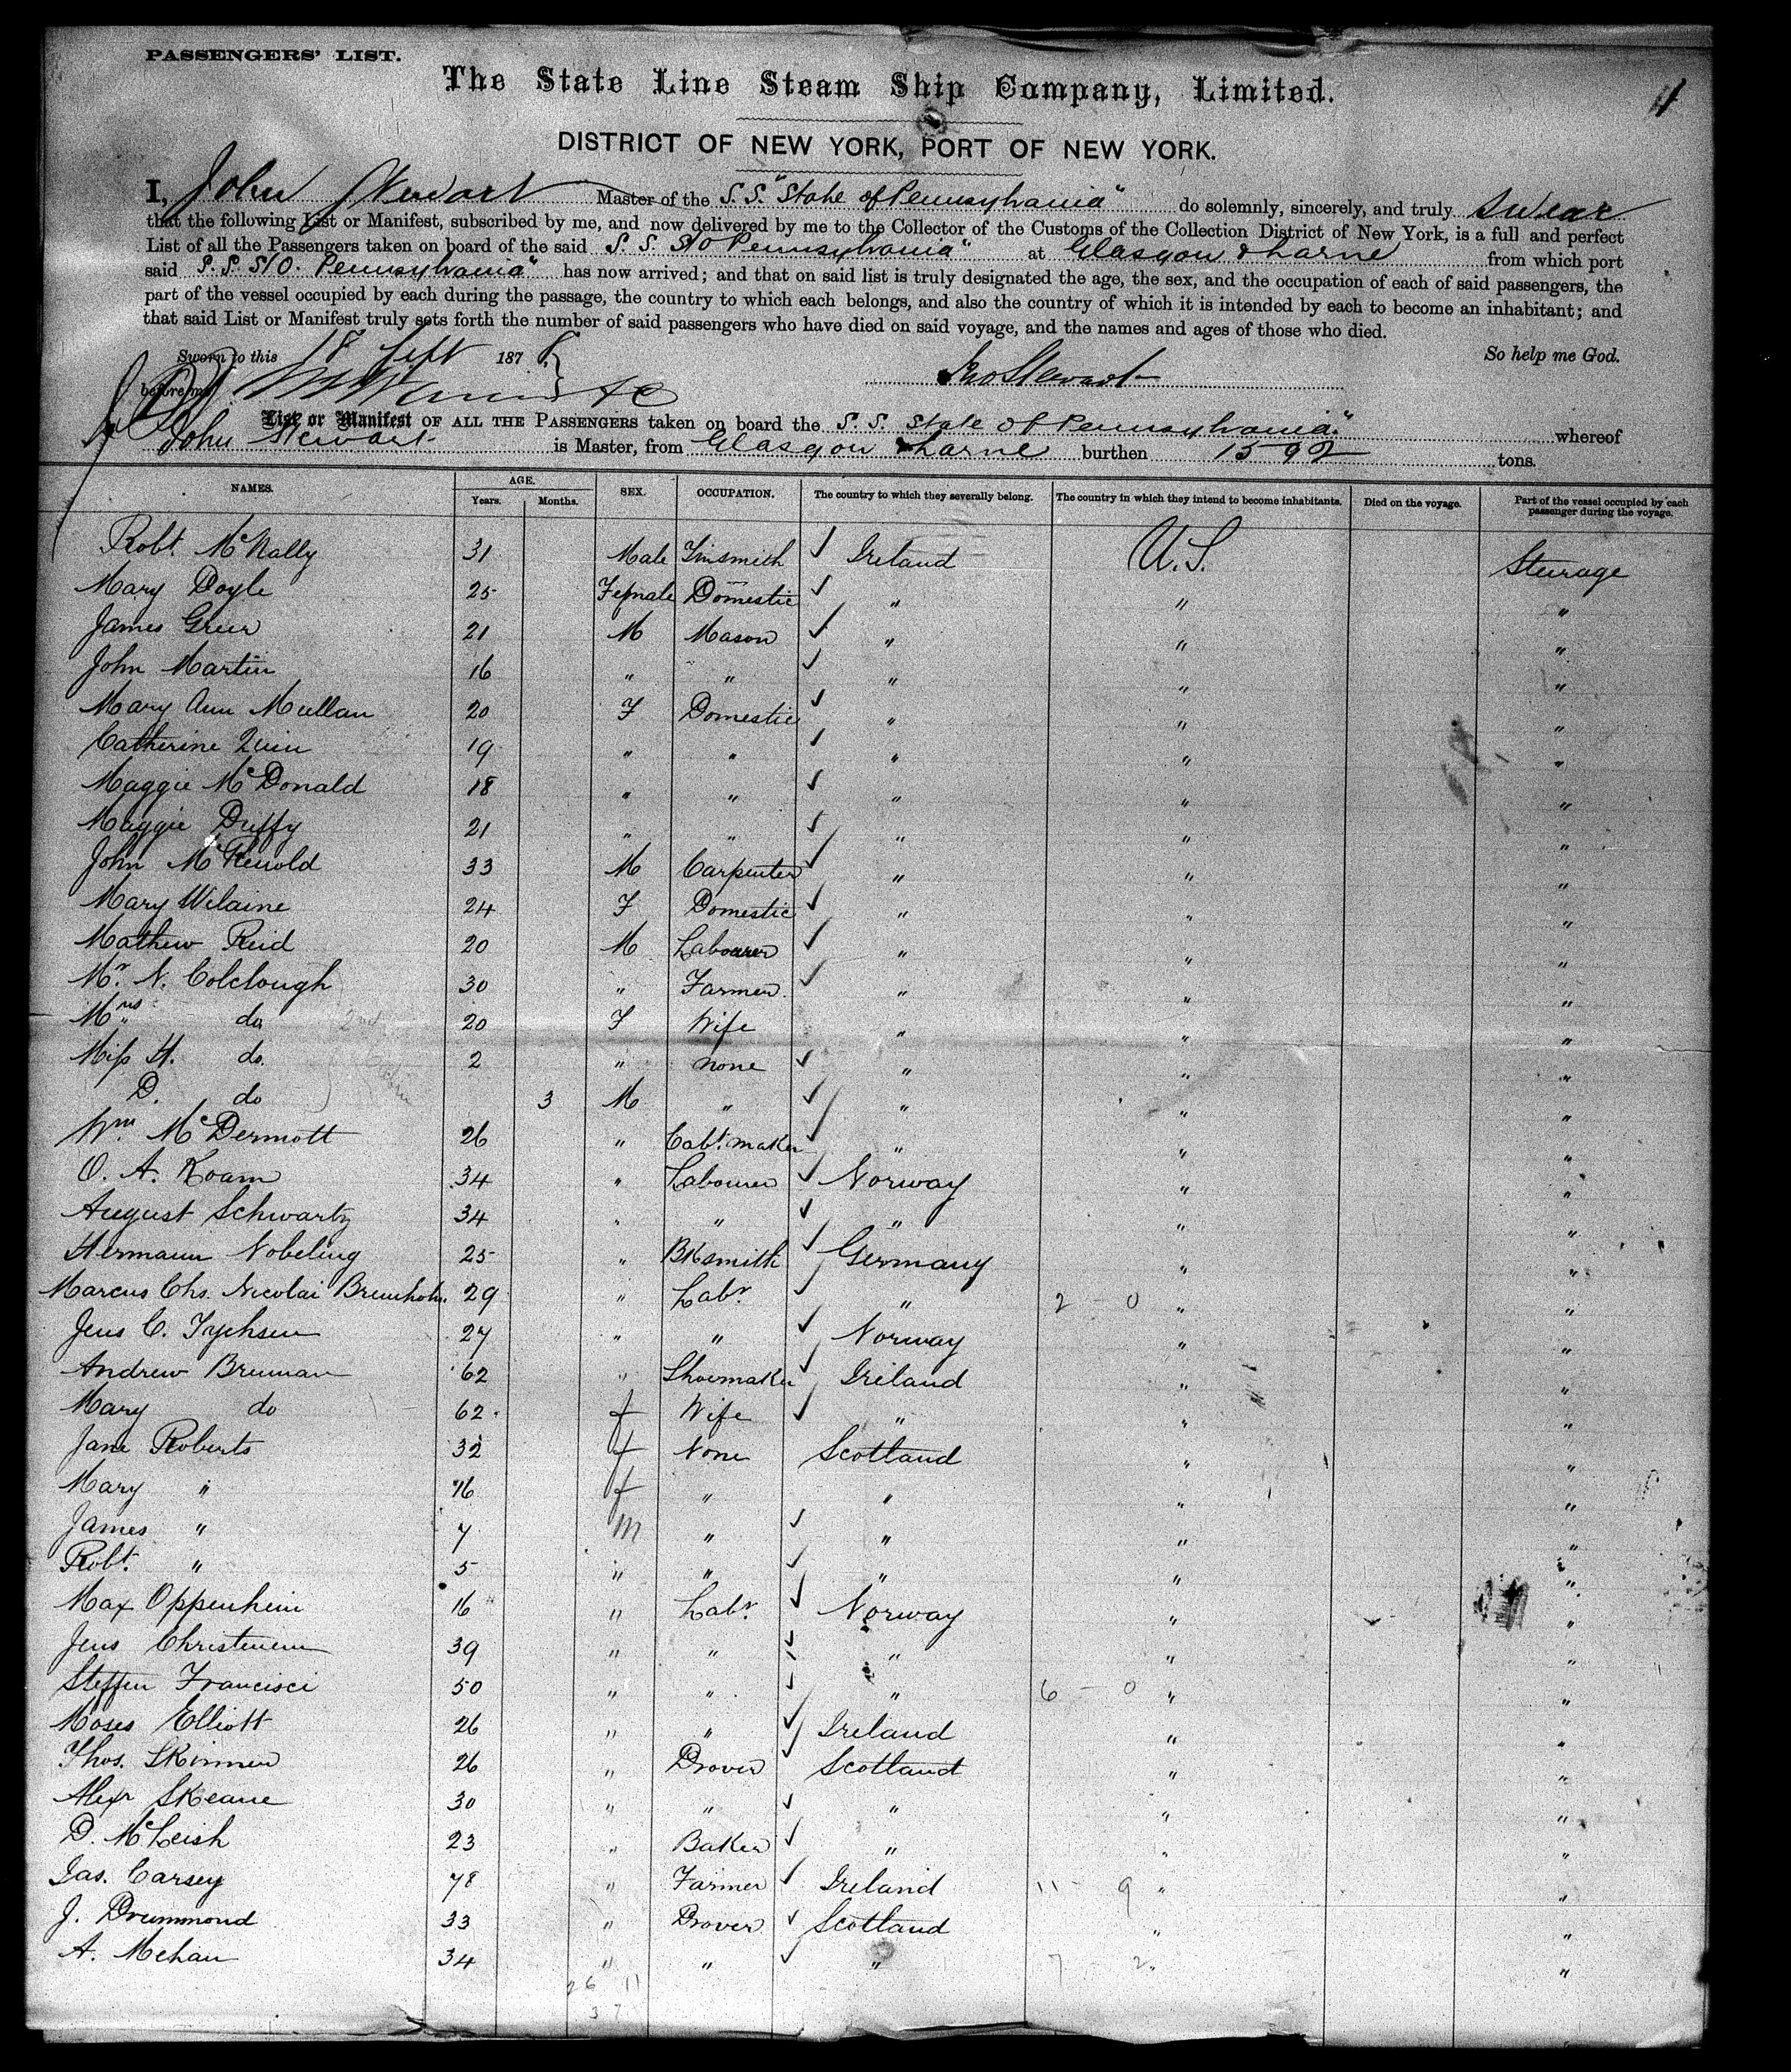 PASSENGERS' LIST.
The State Line Steam Ship Company, Limited.
DISTRICT OF NEW YORK, PORT OF NEW YORK.
I, John Stewart Master of the S.S. "State of Pennsylvania" do solemnly, sincerely, and truly swear
that the following List or Manifest, subscribed by me, and now delivered by me to the Collector of the Customs of the Collection District of New York, is a full and perfect
List of all the Passengers taken on board of the said S. S. S/O Pennsylvania" at Glasgow & Larne from which port
said S.S. S/O. Pennsylvania" has now arrived; and that on said list is truly designated the age, the sex, and the occupation of each of said passengers, the
part of the vessel occupied by each during the passage, the country to which each belongs, and also the country of which it is intended by each to become an inhabitant; and
that said List or Manifest truly sets forth the number of said passengers who have died on said voyage, and the names and ages of those who died.
Sworn to this 18 Sept 1878 So help me God.
before me Jno Stewart
List or Manifest OF ALL THE PASSENGERS taken on board the S. S. State of Pennsylvania" whereof
John Stewart is Master, from Glasgow & Larne burthen 1592 tons.
NAMES. AGE. Years. Months. SEX. OCCUPATION. The country to which they severally belong. The country in which they intend to become inhabitants. Died on the voyage. Part of the vessel occupied by each passenger during the voyage.
Robt. McNally 31 Male Tinsmith Ireland U.S. Steerage
Mary Doyle 25 Female Domestic " " "
James Greer 21 M Mason " " "
John Martin 16 " " " " "
Mary Ann Mullan 20 F Domestic " " "
Catherine Quin 19 " " " " "
Maggie McDonald 18 " " " " "
Maggie Duffy 21 " " " " "
John McRenold 33 M Carpenter " " "
Mary Wilaine 24 F Domestic " " "
Mathew Reid 20 M Labourer " " "
Mr. N. Colclough 30 " Farmer " " "
Mrs " do 20 F Wife " " "
Miss H. do. 2 " none " " "
D. do 3 M " " " "
Wm. McDermott 26 " Cabt. maker " " "
O. A. Roam 34 " Labourer Norway " "
August Schwartz 34 " " " " "
Hermann Nobeling 25 " Bksmith Germany " "
Marcus Chs. Nicolai 29 " Labr. " 2 - 0 " "
Jens C. Tychsen 27 " " Norway " "
Andrew Brennan 62 " Shoemaker Ireland " "
Mary do 62 f Wife " " "
Jane Roberts 32 f None Scotland " "
Mary " f " " " "
James " 7 M " " " "
Robt. " 5 " " " " "
Max Oppenheim 16 " Labr. Norway " "
Jens 39 " " " " "
Steffen Francisci 50 " " " 6 - 0 " "
Moses Elliott 26 " " Ireland " "
Thos. Skinner 26 " Drover Scotland " "
Alexr Skeane 30 " " " " "
D. McLeish 23 " Baker " " "
Jas. Carsey 78 " Farmer Ireland 11 - 9 " "
J. Drummond 33 " Drover Scotland " "
A. Mehan 34 " " " 7 2 " "
26 11
37